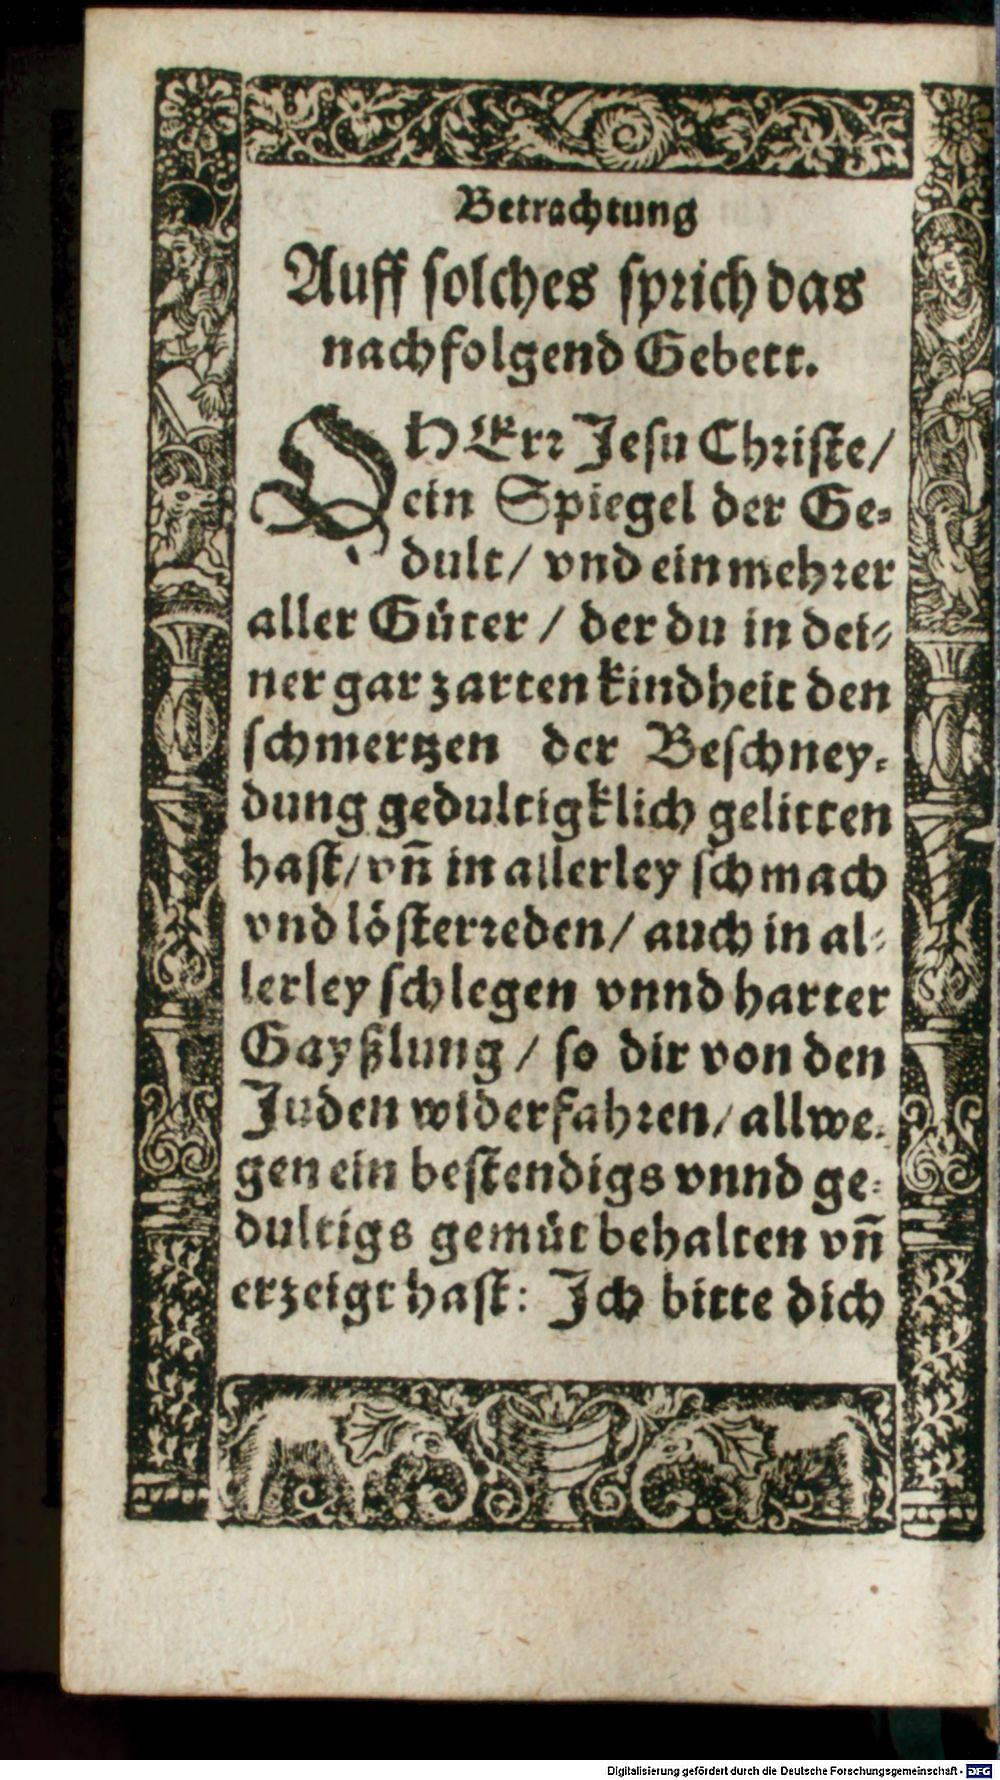 Betrachtung
Auff solches sprich das
nachfolgend Gebett.
O HErr Jesu Christe/
ein Spiegel der Ge-
dult/ vnd ein mehrer
aller Güter / der du in dei-
ner gar zarten kindheit den
schmertzen der Beschney-
dung gedultigklich gelitten
hast/ vn̄ in allerley schmach
vnd lösterreden/ auch in al-
lerley schlegen vnnd harter
Gayßlung / so dir von den
Juden widerfahren/ allwe-
gen ein bestendigs vnnd ge-
dultigs gemüt behalten vn̄
erzeigt hast: Ich bitte dich
Digitalisierung gefördert durch die Deutsche Forschungsgemeinschaft - DFG